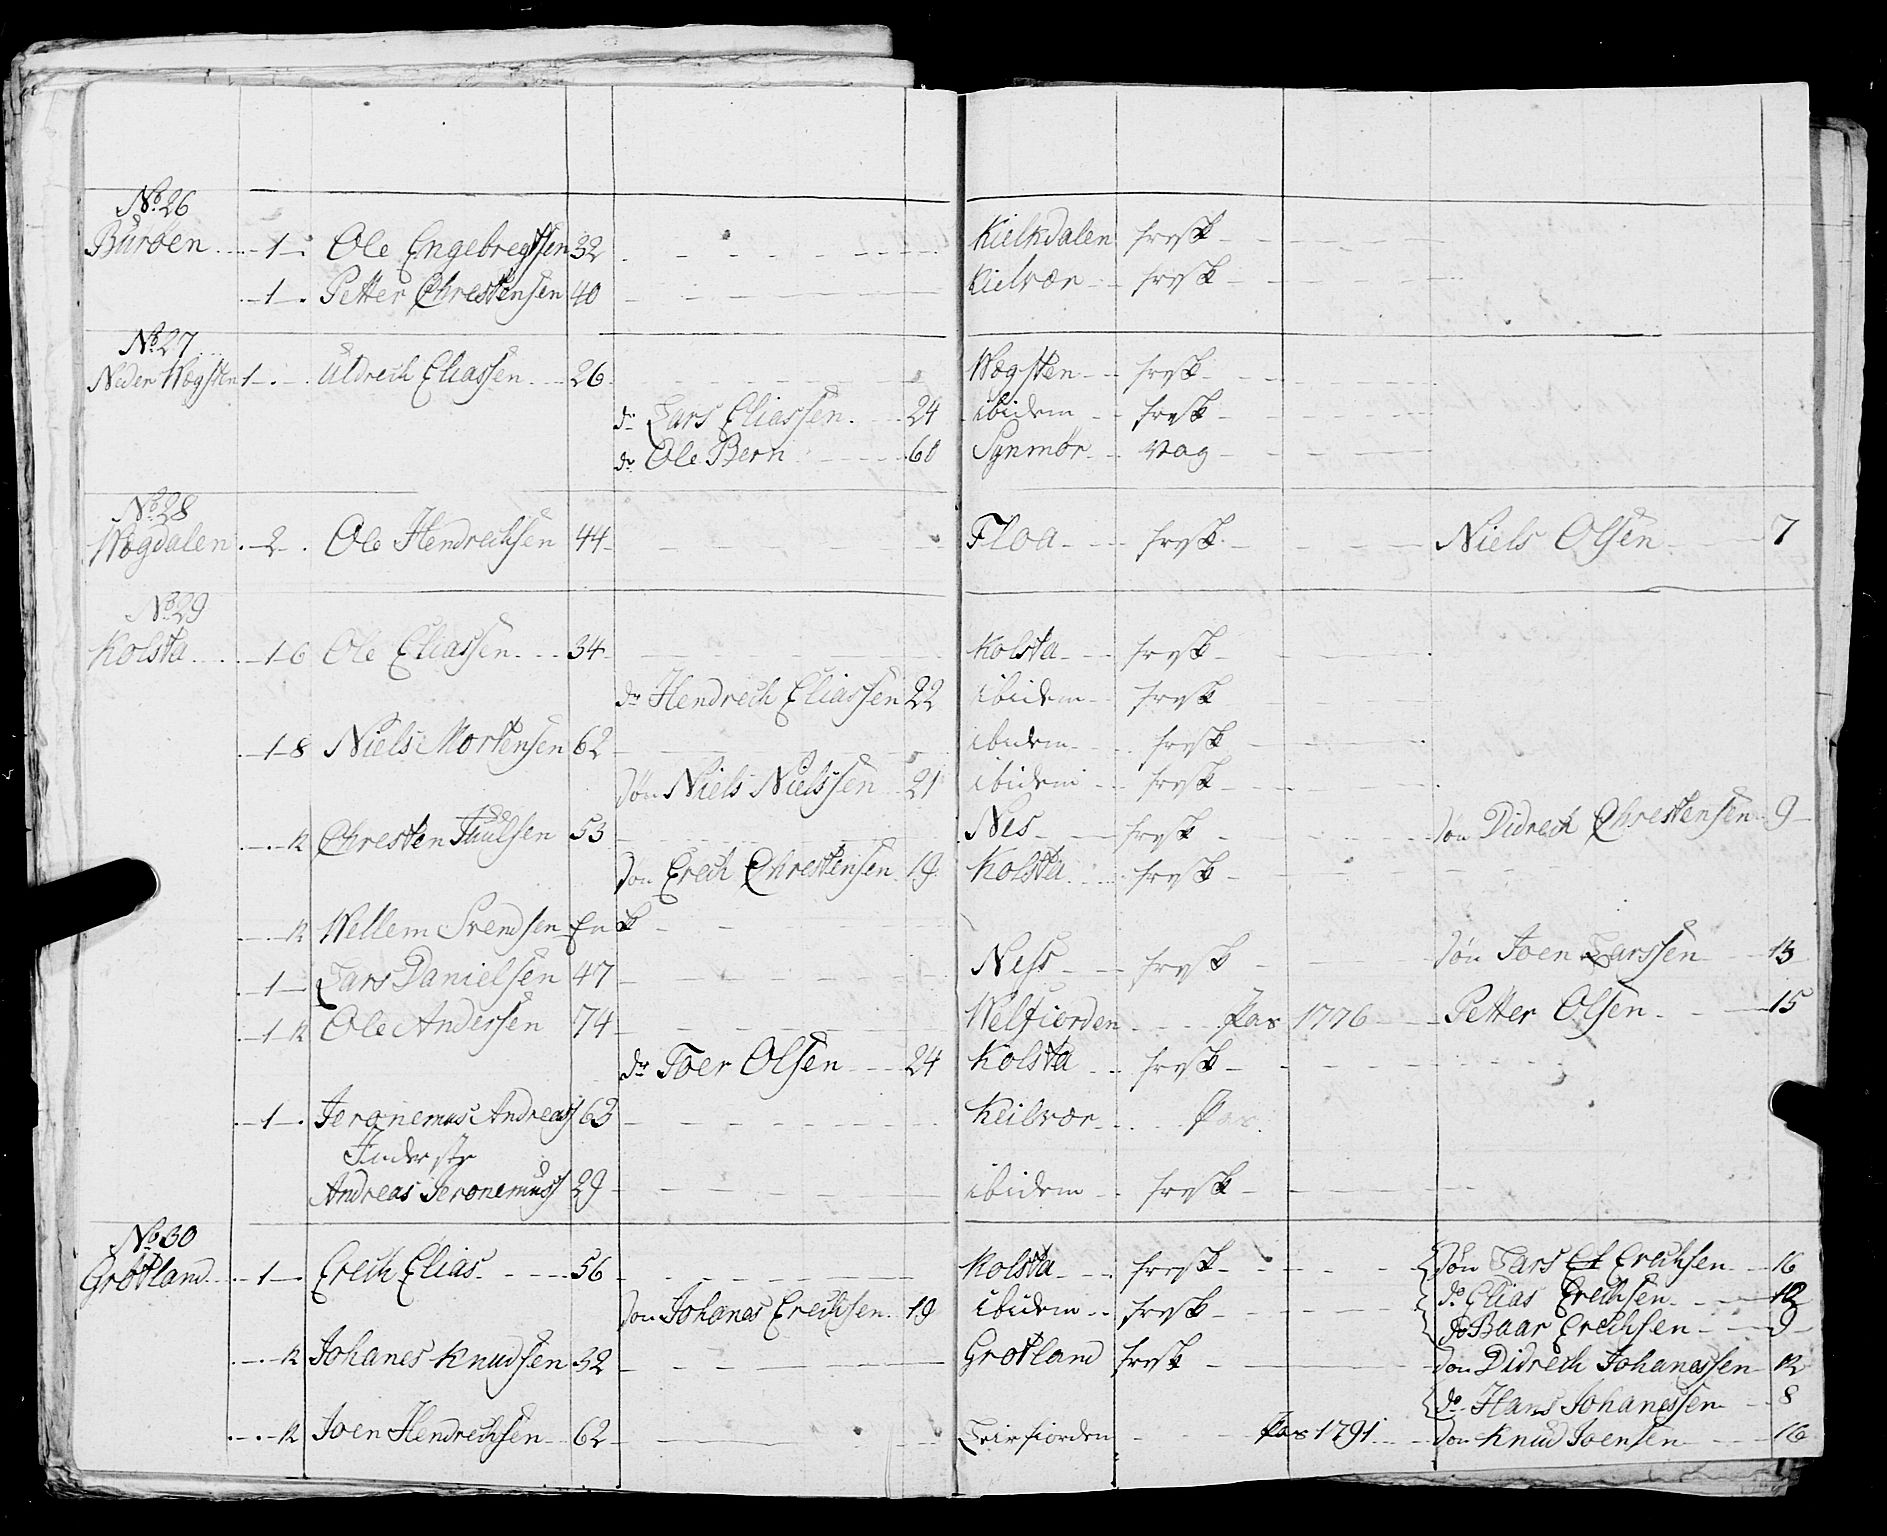 No. 26
Burøen 1 Ole Engebregtsen 32 Kielkdalen frisk
1 Petter Chrestensen 40 Kielvær frisk
No. 27
Neder Wegsten 1 Uldrech Eliassen 26 Wægsten frisk
do Lars Eliassen 24 ibidem frisk
do Ole Bern 60 Synmør vag
No. 28
Wogdalen 2 Ole Hendrechsen 44 Floa frisk Niels Olsen 7
No. 29
Kolsta 16 Ole Eliassen 34 Kolsta frisk
do Hendrech Eliassen 22 ibidem frisk
18 Niels Mortensen 62 ibidem frisk
Søn Niels Nielssen 21 ibidem frisk
R Chresten Paulsen 53 Nes frisk Søn Didrech Chrestensen 9
Søn Erech Chrestensen 19 Kolsta frisk
R Wellem Svendsen
1 Lars Danielsen 47 Ness frisk Søn Joen Larssen 13
1 R Ole Andersen 74 Welfiorden Pas 1776 Petter Olsen 15
do Toer Olsen 24 Kolsta frisk
1 Jeronemus Andreass 63 Keilvær Pas
Inderste
Andreas Jeronemuss 29 ibidem frisk
No. 30
Grøtland 1 Erech Elias 56 Kolsta frisk Søn Lars El Erechsen 16
do Elias Erechsen 12
Søn Johanes Erechsen 19 ibidem frisk
do Baar Erechsen 9
R Johanes Knudsen 32 Grøtland frisk Søn Didrech Johanessen 12
do Hans Johanessen 8
R Joen Hendrechsen 62 Leirfiorden Pas 1791 Søn Knud Joensen 16